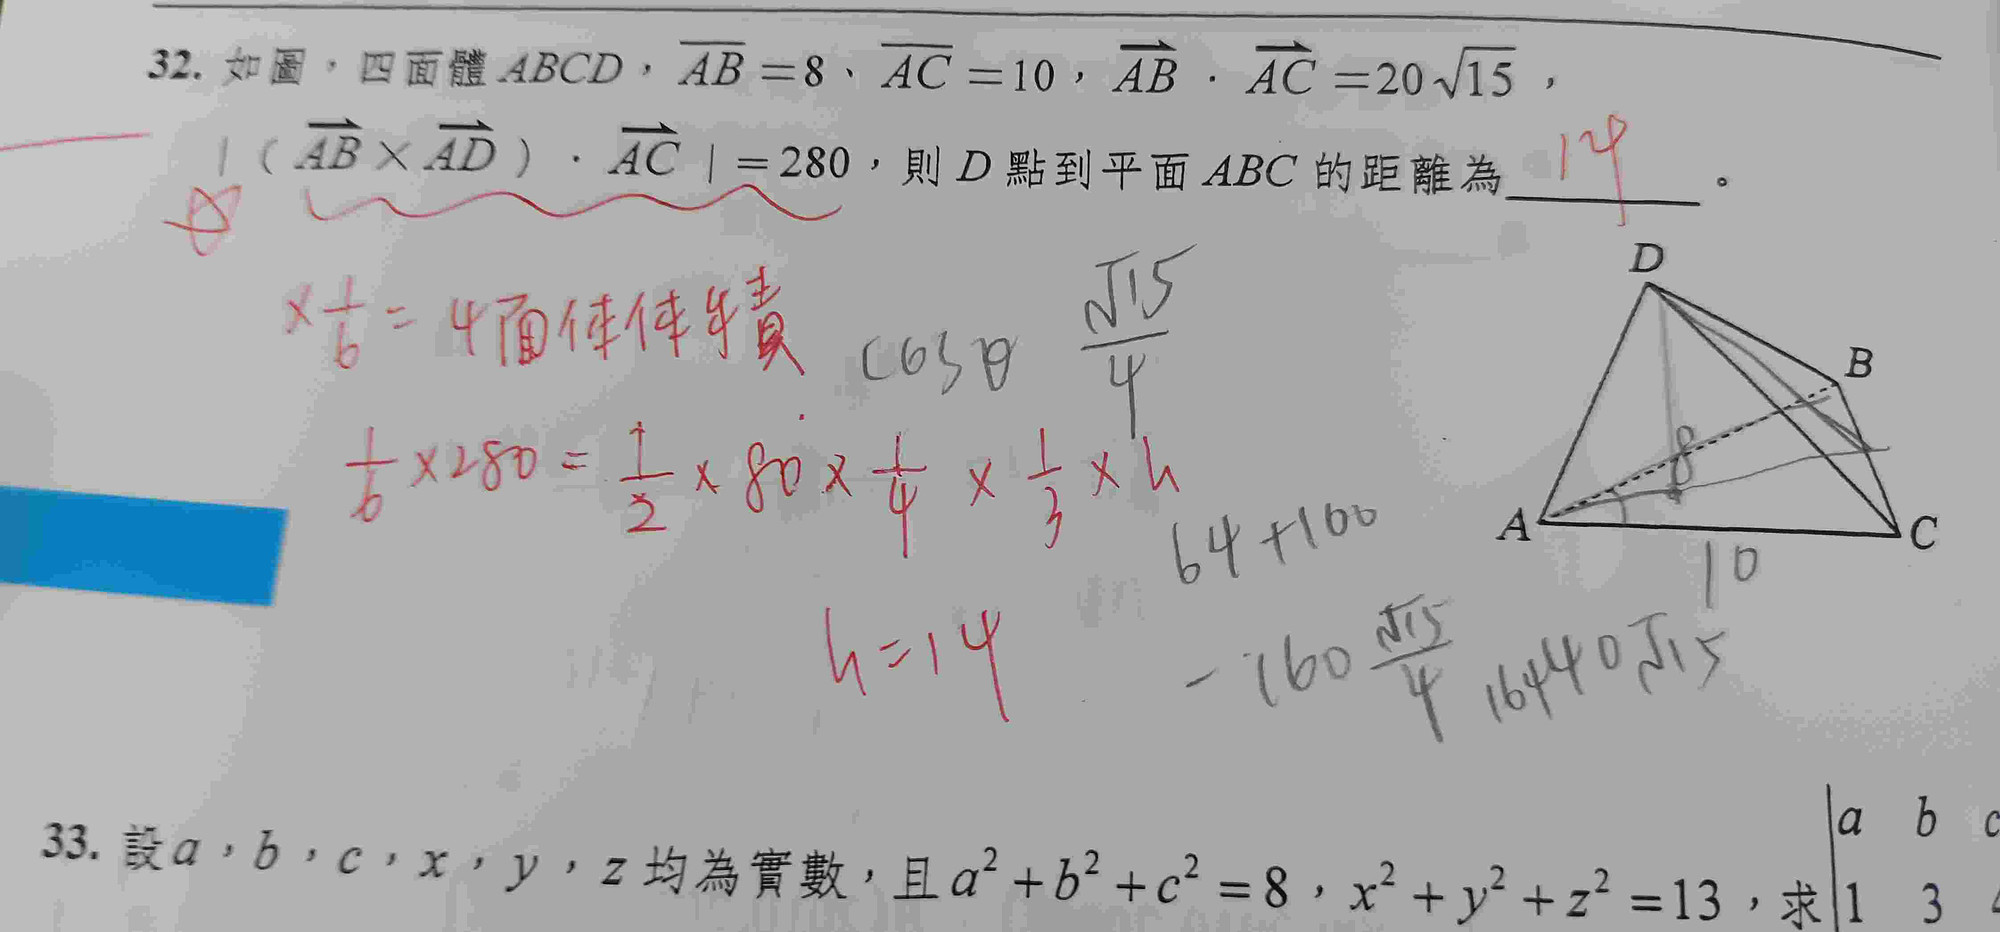 32. 如圖，四面體 ABCD，AB = 8、AC = 10，AB · AC = 20√15，
|（AB × AD）· AC | = 280，則 D 點到平面 ABC 的距離為 14 。
× 1/6 = 4面体体積
cosθ √15/4
1/6 × 280 = 1/2 × 80 × 1/4 × 1/3 × h
h = 14
64 + 100
- 160 √15/4
164 40√15
D
B
8
A
C
10
33. 設 a，b，c，x，y，z 均為實數，且 a² + b² + c² = 8，x² + y² + z² = 13，求
a b c
1 3